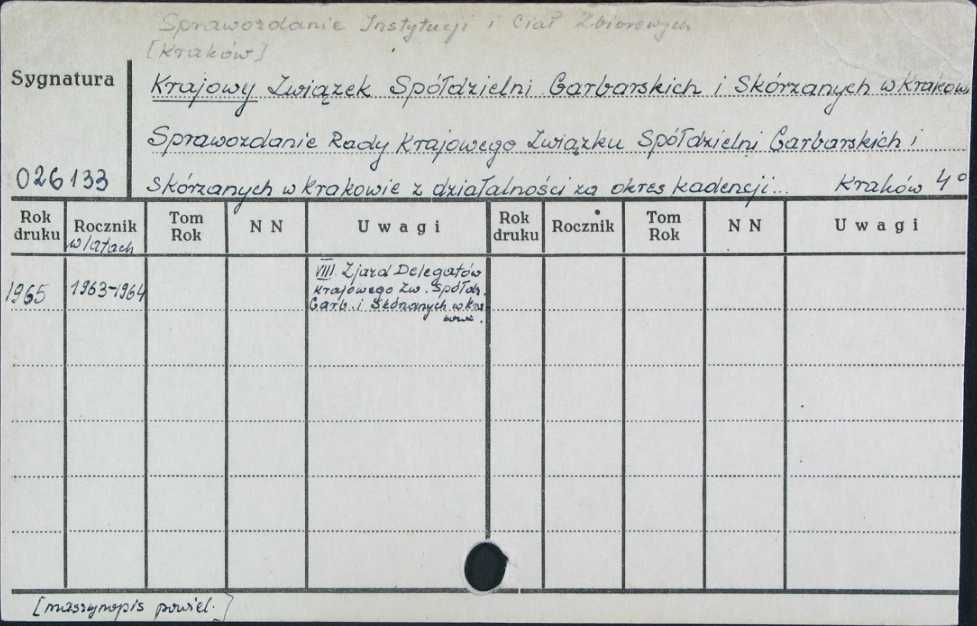 Sprawozdanie Instytucji i Ciał Zbiorowych
[Kraków]
Sygnatura
Krajowy Związek Spółdzielni Garbarskich i Skórzanych w Krakow
Sprawozdanie Rady Krajowego Związku Spółdzielni Garbarskich i
026133
Skórzanych w Krakowie z działalności za okres kadencji... Kraków 4°
Rok druku Rocznik w latach Tom Rok N N Uwagi Rok druku Rocznik Tom Rok N N Uwagi
1965 1963-1964
VIII Zjazd Delegatów
Krajowego Zw. Spółdz.
Garb. i Skórzanych w Kra
kowie.
[maszynopis powiel.]